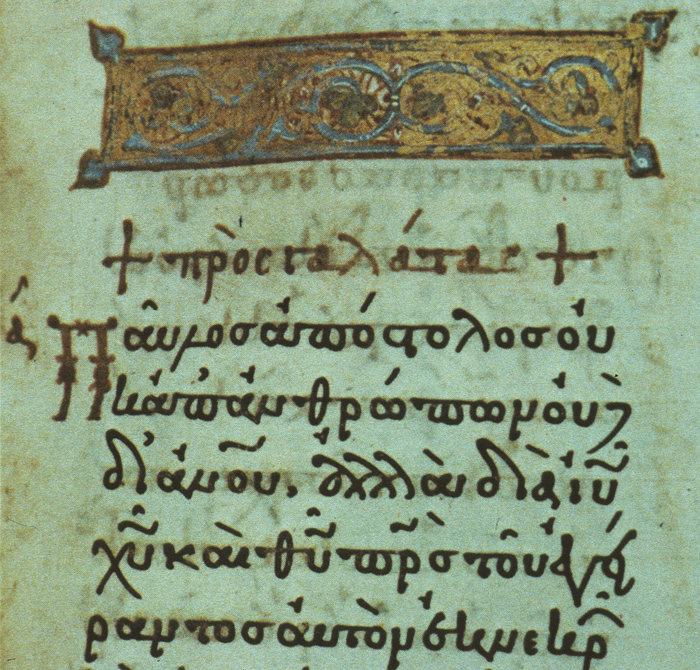 + πρὸς γαλάτας +
ά Παῦλος ἀπόστολος οὐ
κ ἀπ' ἀνθρώπων οὐ
δἰ ἀνοῦ, ἀλλὰ διὰ ἰῦ
χῦ καὶ θῦ πρς τοῦ ἐγεί
ραντος αὐτὸν ἐκ νεκρ